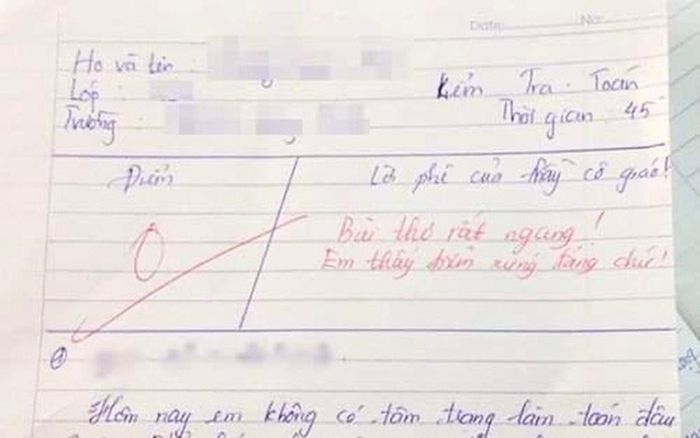 Date: No:
Họ và tên :
Lớp : Kiểm Tra. Toán
Trường : Thời gian 45'
Điểm Lời phê của thầy cô giáo!
0 Bài thơ rất ngang!
Em thấy điểm xứng đáng chứ!
Hôm nay em không có tâm trạng làm toán đâu